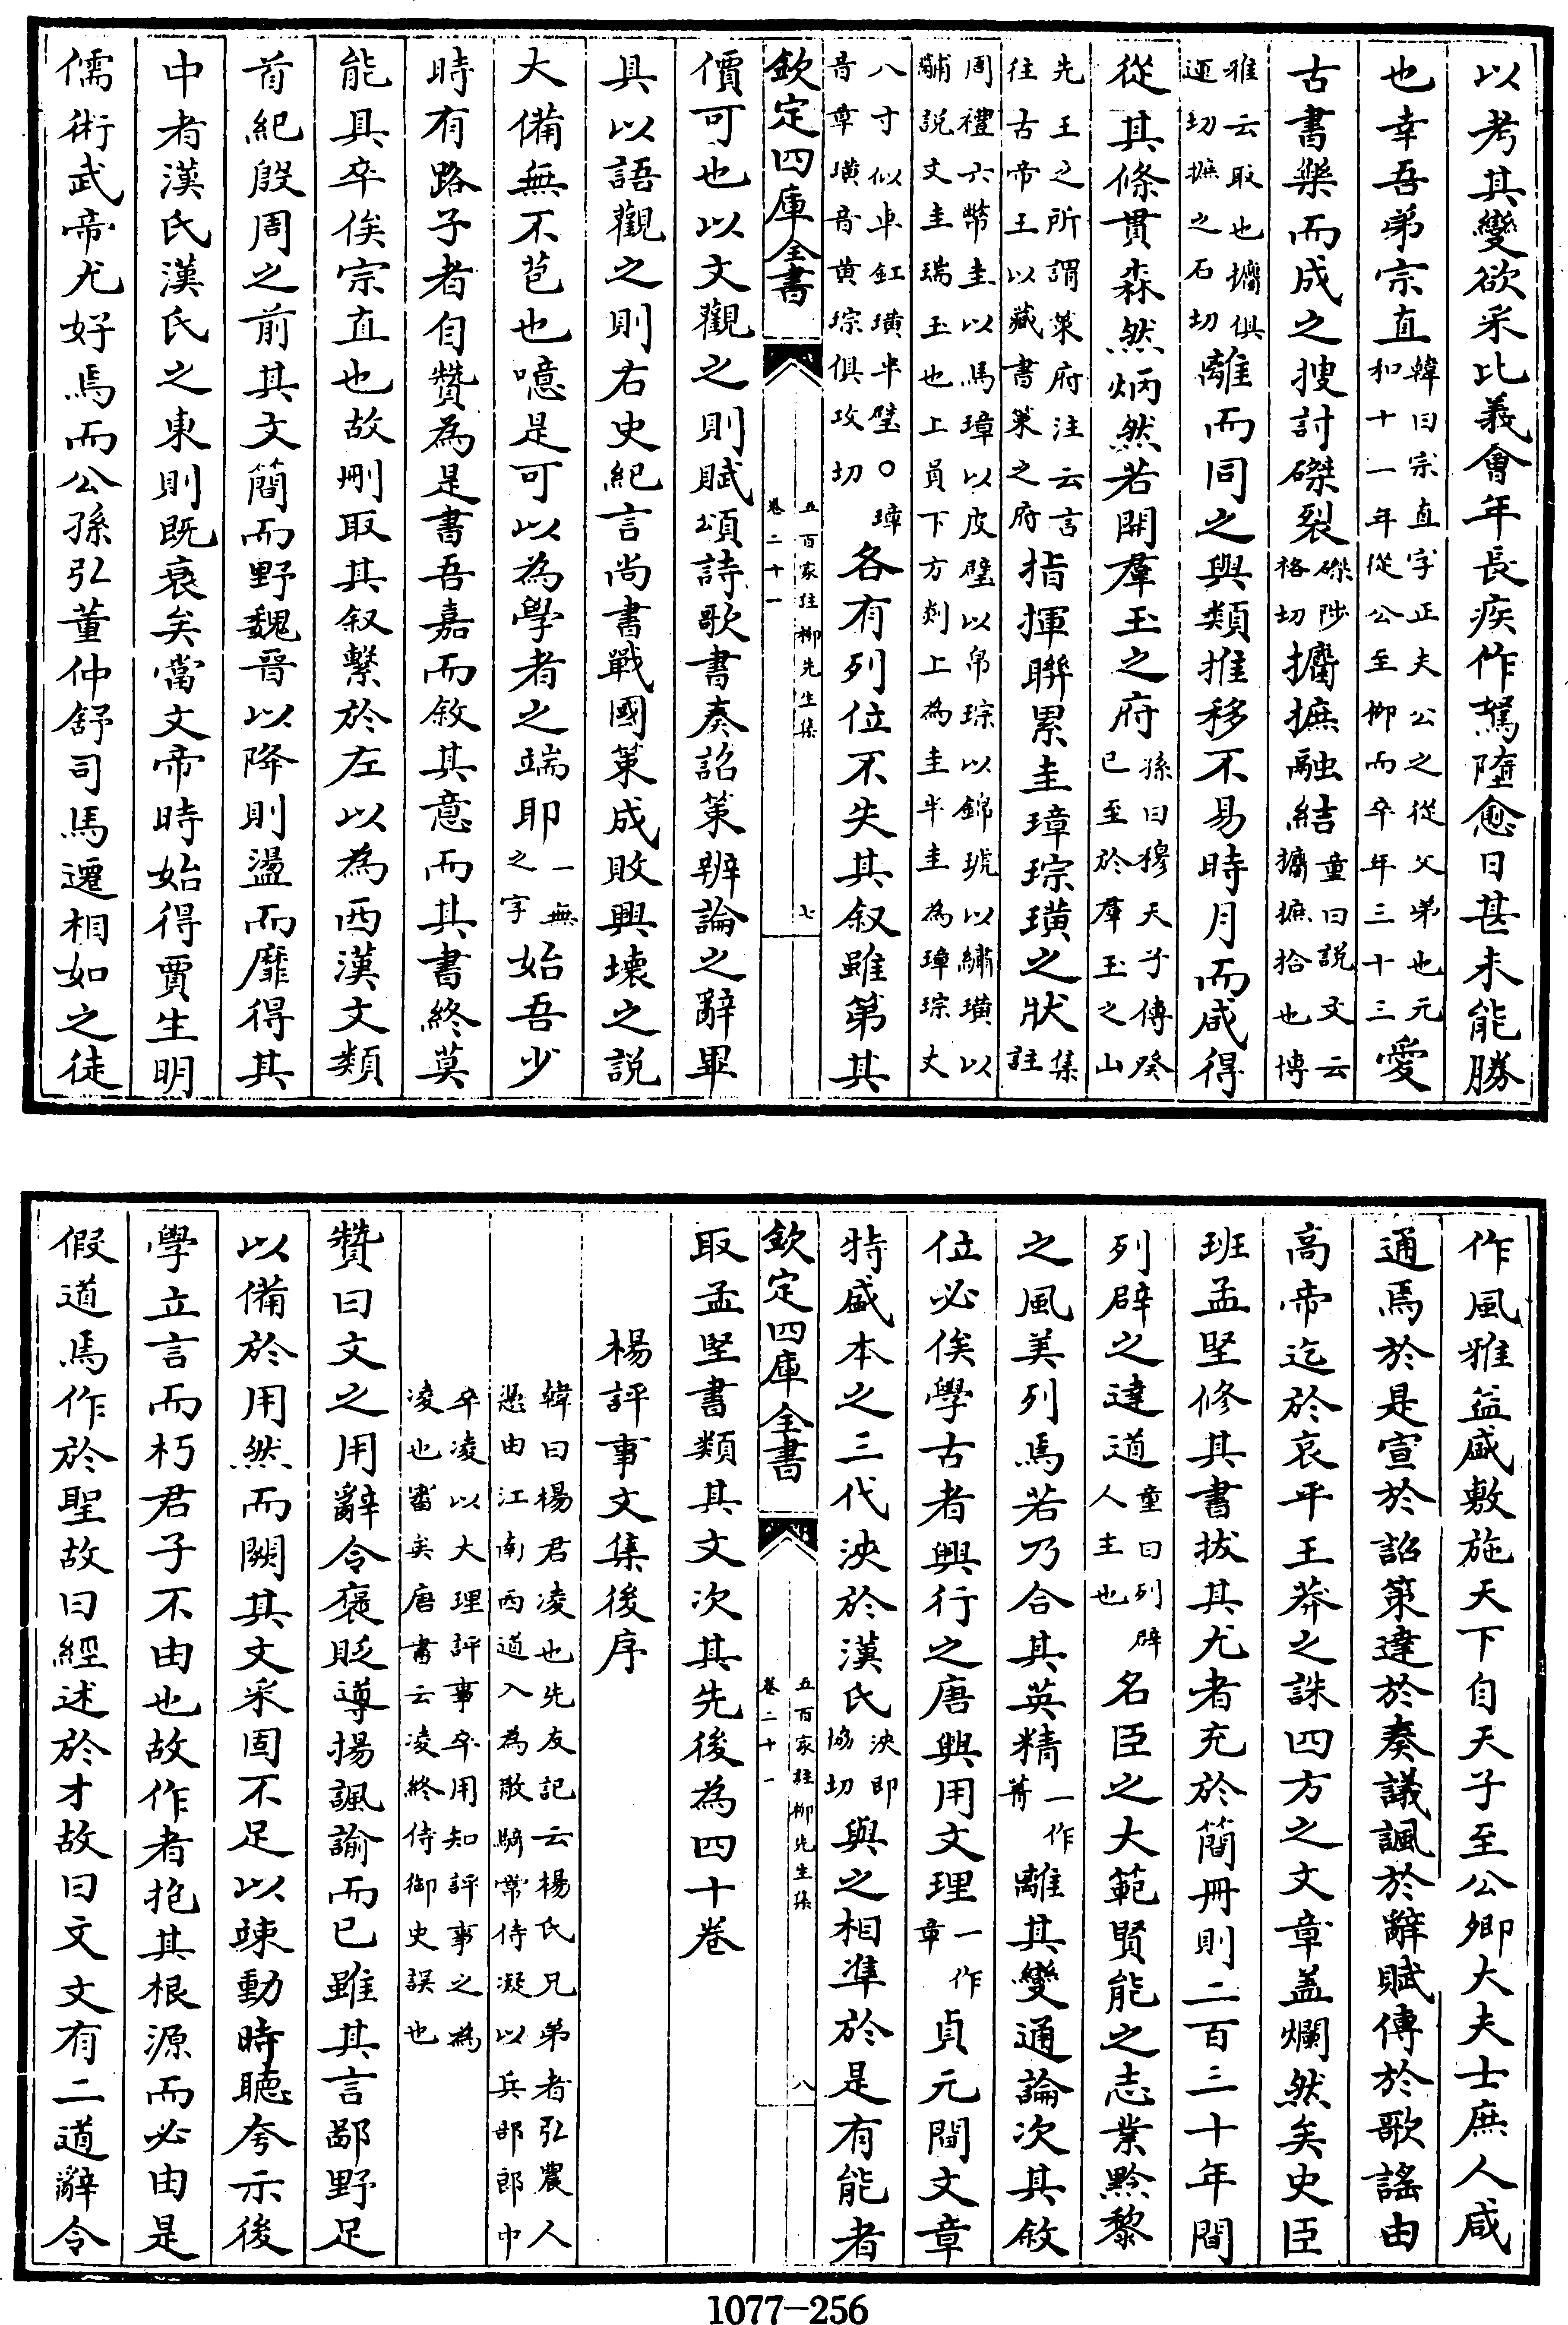 以考其變欲采比義會年長疾作駑墮愈日甚未能勝
也幸吾弟宗直韓曰宗直字正夫公之從父弟也元和十一年從公至柳而卒年三十三愛
古書樂而成之搜討磔裂磔陟格切攟摭融結童曰説文云攟摭拾也博
雅云取也攟俱運切摭之石切離而同之與類推移不易時月而咸得
從其條貫森然炳然若開羣玉之府孫曰穆天子傳癸已至於羣玉之山
先王之所謂策府注云言往古帝王以藏書策之府指揮聯累圭璋琮璜之狀集註
周禮六幣圭以馬璋以皮璧以帛琮以錦琥以繡璜以黼説文圭瑞玉也上員下方剡上為圭半圭為璋琮丈
八寸似車釭璜半璧○璋音章璜音黄琮俱攻切各有列位不失其叙雖第其
欽定四庫全書
五百家註柳先生集
卷二十一
七
價可也以文觀之則賦頌詩歌書奏詔策辨論之辭畢
具以語觀之則右史紀言尚書戰國策成敗興壞之説
大備無不苞也噫是可以為學者之端耶一無之字始吾少
時有路子者自贊為是書吾嘉而敘其意而其書終莫
能具卒俟宗直也故刪取其叙繫於左以為西漢文類
首紀殷周之前其文簡而野魏晉以降則盪而靡得其
中者漢氏漢氏之東則既衰矣當文帝時始得賈生明
儒術武帝尤好焉而公孫弘董仲舒司馬遷相如之徒
作風雅益盛敷施天下自天子至公卿大夫士庶人咸
通焉於是宣於詔策達於奏議諷於辭賦傳於歌謠由
高帝迄於哀平王莽之誅四方之文章盖爛然矣史臣
班孟堅修其書拔其尤者充於簡冊則二百三十年間
列辟之達道童曰列辟人主也名臣之大範賢能之志業黔黎
之風美列焉若乃合其英精一作菁離其變通論次其敘
位必俟學古者興行之唐興用文理一作章貞元間文章
特盛本之三代浹於漢氏浹即協切與之相準於是有能者
欽定四庫全書
五百家註柳先生集
卷二十一
八
取孟堅書類其文次其先後為四十卷
楊評事文集後序
韓曰楊君凌也先友記云楊氏兄弟者弘農人憑由江南西道入為散騎常侍凝以兵部郎中
卒凌以大理評事卒用知評事之為凌也審矣唐書云凌終侍御史誤也
贊曰文之用辭令褒貶導揚諷諭而已雖其言鄙野足
以備於用然而闕其文采固不足以竦動時聽夸示後
學立言而朽君子不由也故作者抱其根源而必由是
假道焉作於聖故曰經述於才故曰文文有二道辭令
1077-256